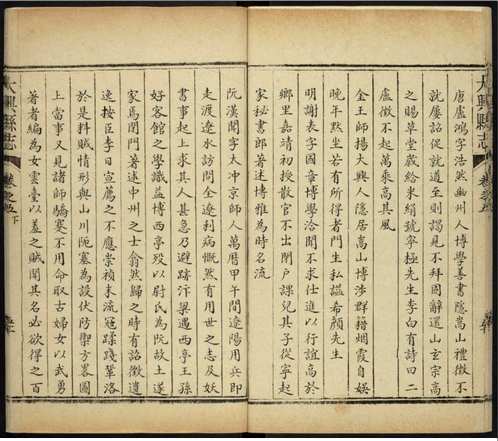 大興縣志 卷之五
唐盧鴻字浩然幽州人博學善書隱嵩山禮徵不
就屢詔促就道至則謁見不拜固辭還山玄宗高
之賜草堂歲給米絹號寧極先生李白有詩曰二
盧徵不起萬乘高其風
金王師揚大興人隱居嵩山博涉群籍烟霞自娛
晚年默坐若有所得者門生私諡希顏先生
明謝表字國章博學洽聞不求仕進以行誼高於
鄉里嘉靖初授散官不出閉戶課兒其子從寧起
家秘書郎著述博雅為時名流
阮漢聞字太冲京師人萬曆甲午間遼陽用兵即
走渡遼水訪問全遼利病慨然有用世之志及妖
書事起上求其人甚急乃避跡汴梁遇西亭王孫
好客館之學識益博西亭歿以尉氏為阮故土遂
家焉閉門著述中州之士翕然歸之時有詔徵遺
逸按臣李日宣薦之不應崇禎末流寇蹂踐鞏洛
於是料賊情形與山川阨塞為設伏防禦方畧圖
上當事又見諸師驕蹇不用命取古婦女以武勇
著者編為女雲臺以羞之賊聞其名必欲得之百
大興縣志 卷之五下